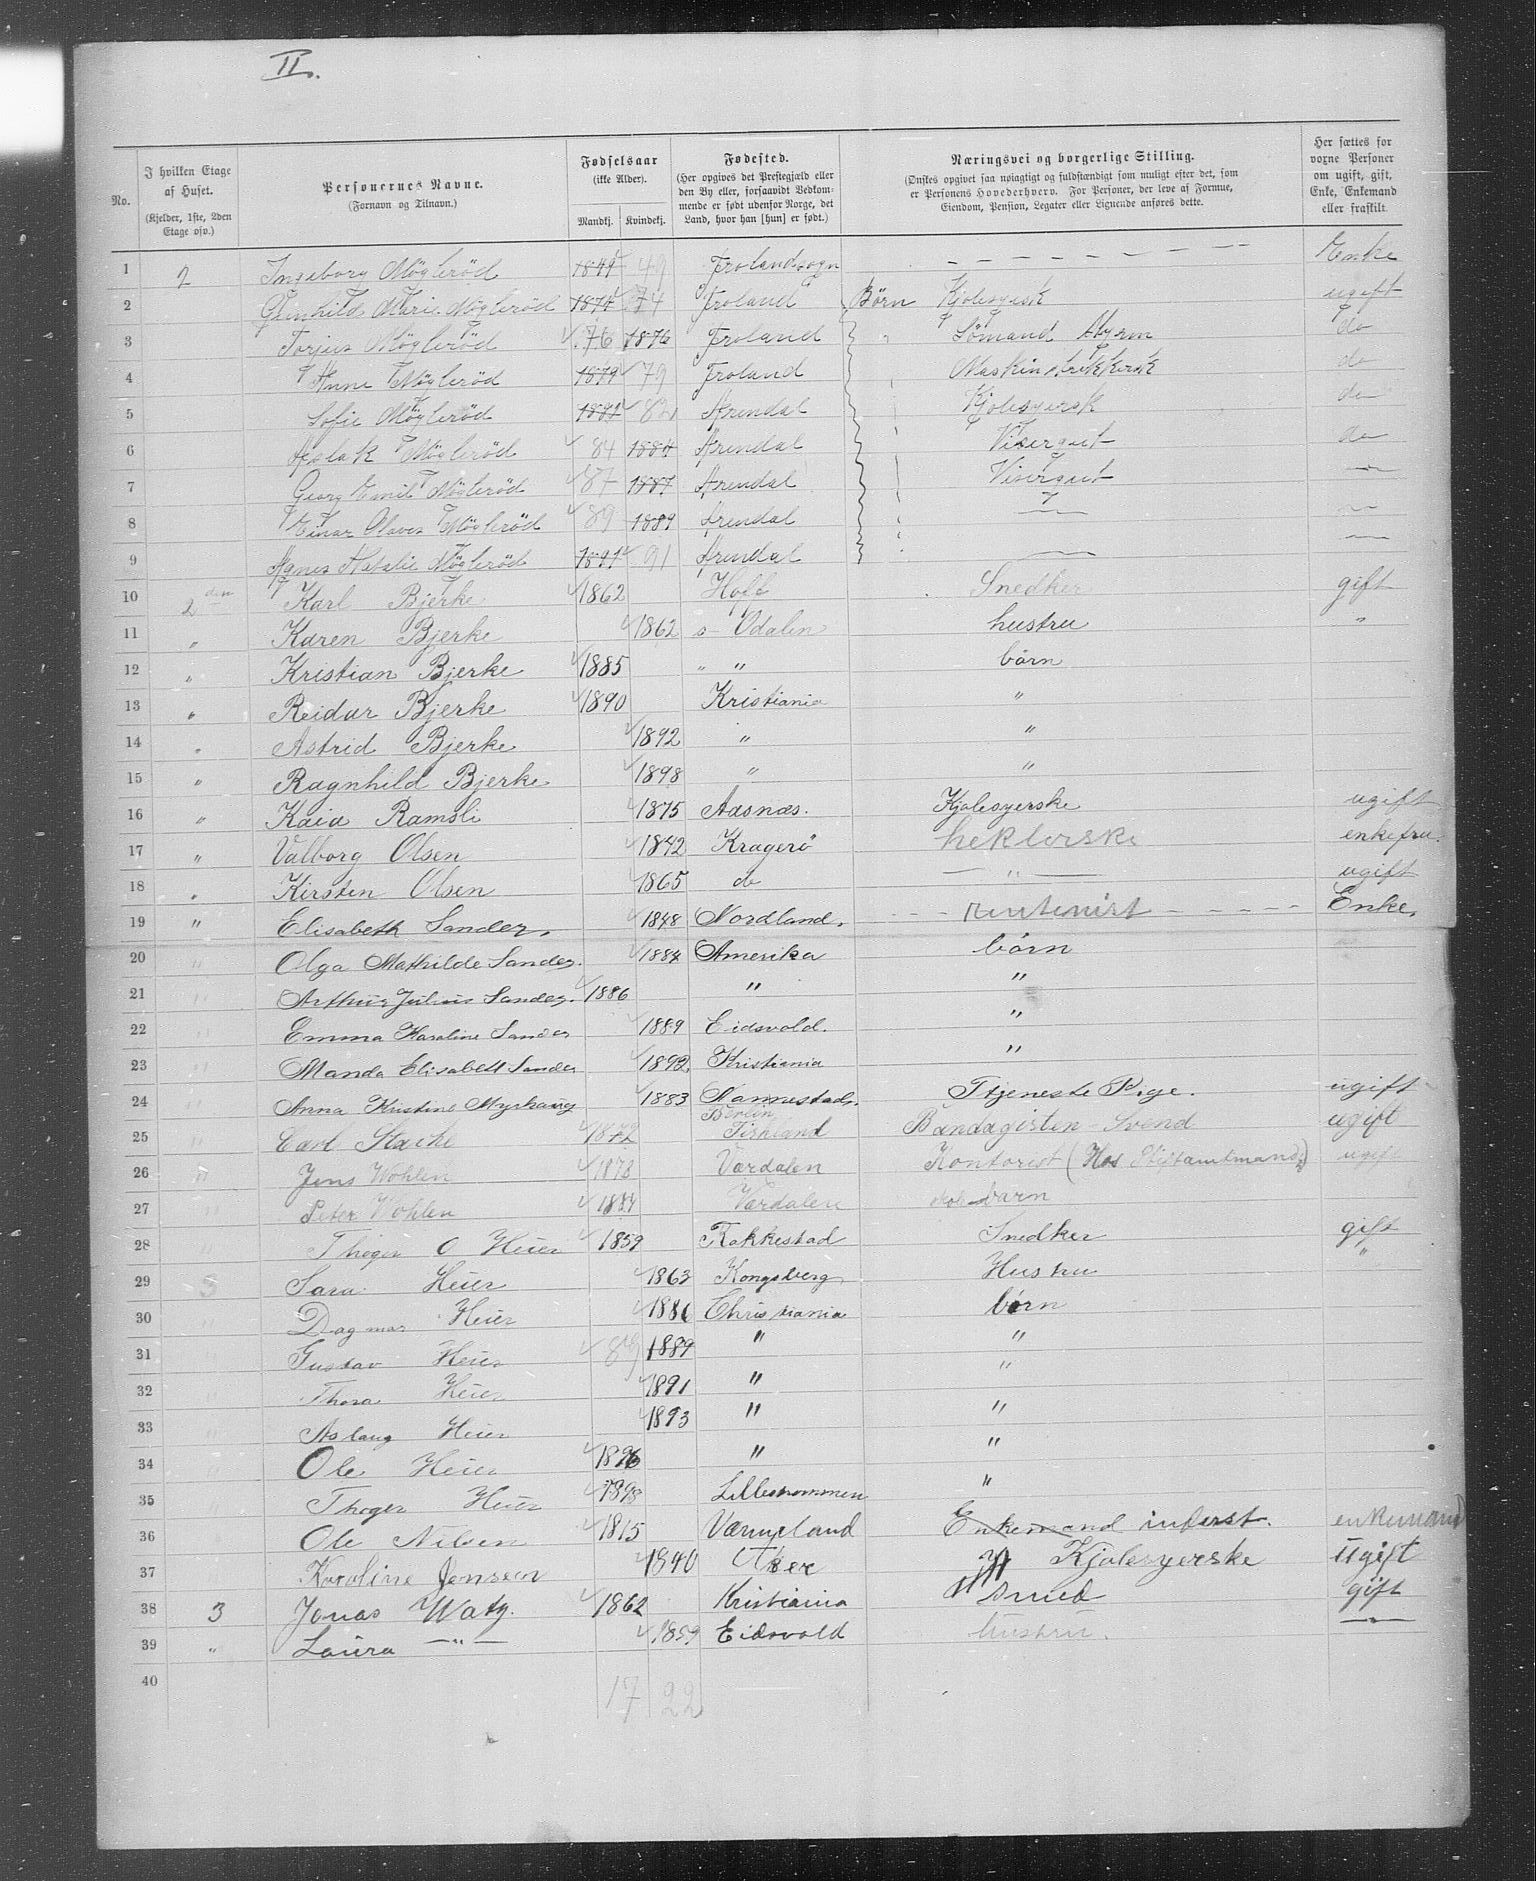 II.
No. I hvilken Etage af Huset. (Kjelder, 1ste, 2den Etage osv.) Personernes Navne. (Fornavn og Tilnavn.) Fødselsaar (ikke Alder). Mandkj. Kvindekj. Fødested. (Her opgives det Prestegjæld eller den By eller, forsaavidt Vedkommende er født udenfor Norge, det Land, hvor han [hun] er født.) Næringsvei og borgerlige Stilling. (Ønskes opgivet saa nøiagtigt og fuldstændigt som muligt efter det, som er Personens Hovederhverv. For Personer, der leve af Formue, Eiendom, Pension, Legater eller Lignende anføres dette. Her sættes for voxne Personer om ugift, gift, Enke, Enkemand eller fraskilt.
1 2 Ingeborg Møglerød 1849 49 Frolandsogn — Enke
2 Gunhild Marie Møglerød 1874 74 Froland Børn Kjolesyersk ugift
3 Torjus Møglerød 76 1876 Froland " Sømand do
4 Anne Møglerød 1879 79 Froland Maskinstrikkersk do
5 Sofie Møglerød 1882 82 Arendal Kjolesyersk do
6 Aslak Møglerød 84 1884 Arendal Visergut do
7 Georg Emil Møglerød 87 1887 Arendal Visergut —"—
8 Einar Olaves Møglerød 89 1889 Arendal —
9 Agnes Natalie Møglerød 1891 91 Arendal —
10 2den Karl Bjerke 1862 Hoff Snedker gift
11 " Karen Bjerke 1862 s- Odalen hustru "
12 " Kristian Bjerke 1885 " " børn
13 " Reidar Bjerke 1890 Kristiania "
14 " Astrid Bjerke 1892 " "
15 " Ragnhild Bjerke 1898 " "
16 " Kaia Ramsli 1875 Aasnæs. Kjolesyerske ugift
17 " Valborg Olsen 1842 Kragerø heklerske enkefru.
18 " Kirsten Olsen 1865 do —"— ugift
19 " Elisabeth Sander. 1848 Nordland. rentenist Enke.
20 " Olga Mathilde Sander. 1884 Amerika børn
21 " Arthur Julius Sander. 1886 " "
22 " Emma Karoline Sander 1889 Eidsvold. "
23 " Manda Elisabett Sander 1892 Kristiania "
24 " Anna Kristine Myrhaug 1883 Nannestad. Tjeneste Pige. ugift
25 " Carl Stache 1872 Berlin Tiskland Bandagisten-Svend ugift
26 " Jens Wohlen 1873 Værdalen Kontorist (Hos Stiftamtmand) ugift
27 " Peter Wohlen 1884 Værdalen skolebarn
28 Thoger O Heier 1859 Rakkestad Snedker gift
29 Sara Heier 1863 Kongsberg Hustru "
30 Dagmar Heier 1886 Christiania børn
31 Gustav Heier 89 1889 " "
32 Thora Heier 1891 " "
33 Aslaug Heier 1893 " "
34 Ole Heier 1896 " "
35 Thoger Heier 1898 Lillestrømmen "
36 Ole Nilsen 1815 Værmeland Enkemand inderst. enkemand
37 Karoline Jensen 1840 Aker Kjolesyerske ugift
38 3 Jonas Watz. 1862 Kristiania smed gift
39 " Laura —"— 1859 Eidsvold hustru. —"—
40
17 22